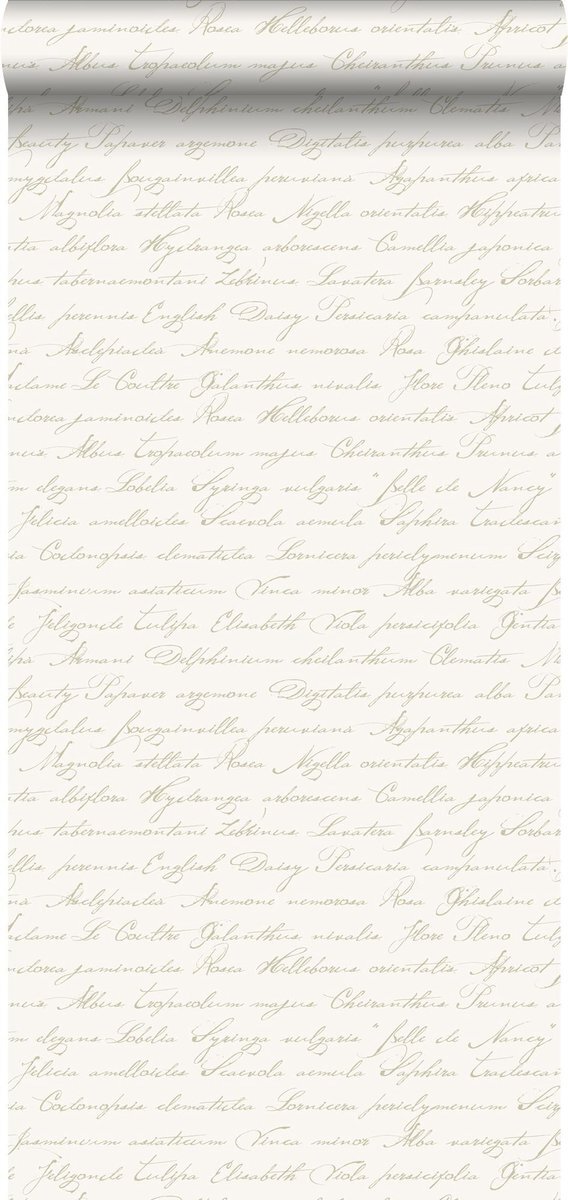 dorea jaminoides Rosea Helleborus orientalis Apricot
nus Albus tropaeolum majus Cheiranthus Prunus a
ipa Armani Delphinium cheilanthum Clematis
Beauty Papaver argemone Digitalis purpurea alba Pa
mygdalus Bougainvillea peruviana Agapanthus africa
Magnolia stellata Rosea Nigella orientalis Hippeatru
tia albiflora Hydrangea arborescens Camellia japonica
pus tabernaemontani Zebrinus Lavatera Barnsley Sorbar
ellis perennis English Daisy Persicaria campanulata
na Asclepiadea Anemone nemorosa Rosa Ghislaine d
adame Le Coultre Galanthus nivalis Flore Pleno tulp
ndorea jaminoides Rosea Helleborus orientalis Apricot
nus Albus tropaeolum majus Cheiranthus Prunus a
m elegans Lobelia Syringa vulgaris "Belle de Nancy"
Felicia amelloides Scaevola aemula Saphira tradescan
ia Codonopsis clematidea Lornicera periclymenum Sciz
Jasmineum asiaticum Vinca minor Alba variegata B
Feligonde tulipa Elisabeth Viola persicifolia Gentia
ipa Armani Delphinium cheilanthum Clematis
Beauty Papaver argemone Digitalis purpurea alba Pa
mygdalus Bougainvillea peruviana Agapanthus africa
Magnolia stellata Rosea Nigella orientalis Hippeatru
tia albiflora Hydrangea arborescens Camellia japonica
pus tabernaemontani Zebrinus Lavatera Barnsley Sorbar
ellis perennis English Daisy Persicaria campanulata
na Asclepiadea Anemone nemorosa Rosa Ghislaine d
adame Le Coultre Galanthus nivalis Flore Pleno tulp
ndorea jaminoides Rosea Helleborus orientalis Apricot
nus Albus tropaeolum majus Cheiranthus Prunus a
m elegans Lobelia Syringa vulgaris "Belle de Nancy"
Felicia amelloides Scaevola aemula Saphira tradescan
ia Codonopsis clematidea Lornicera periclymenum Sciz
Jasmineum asiaticum Vinca minor Alba variegata B
Feligonde tulipa Elisabeth Viola persicifolia Gentia